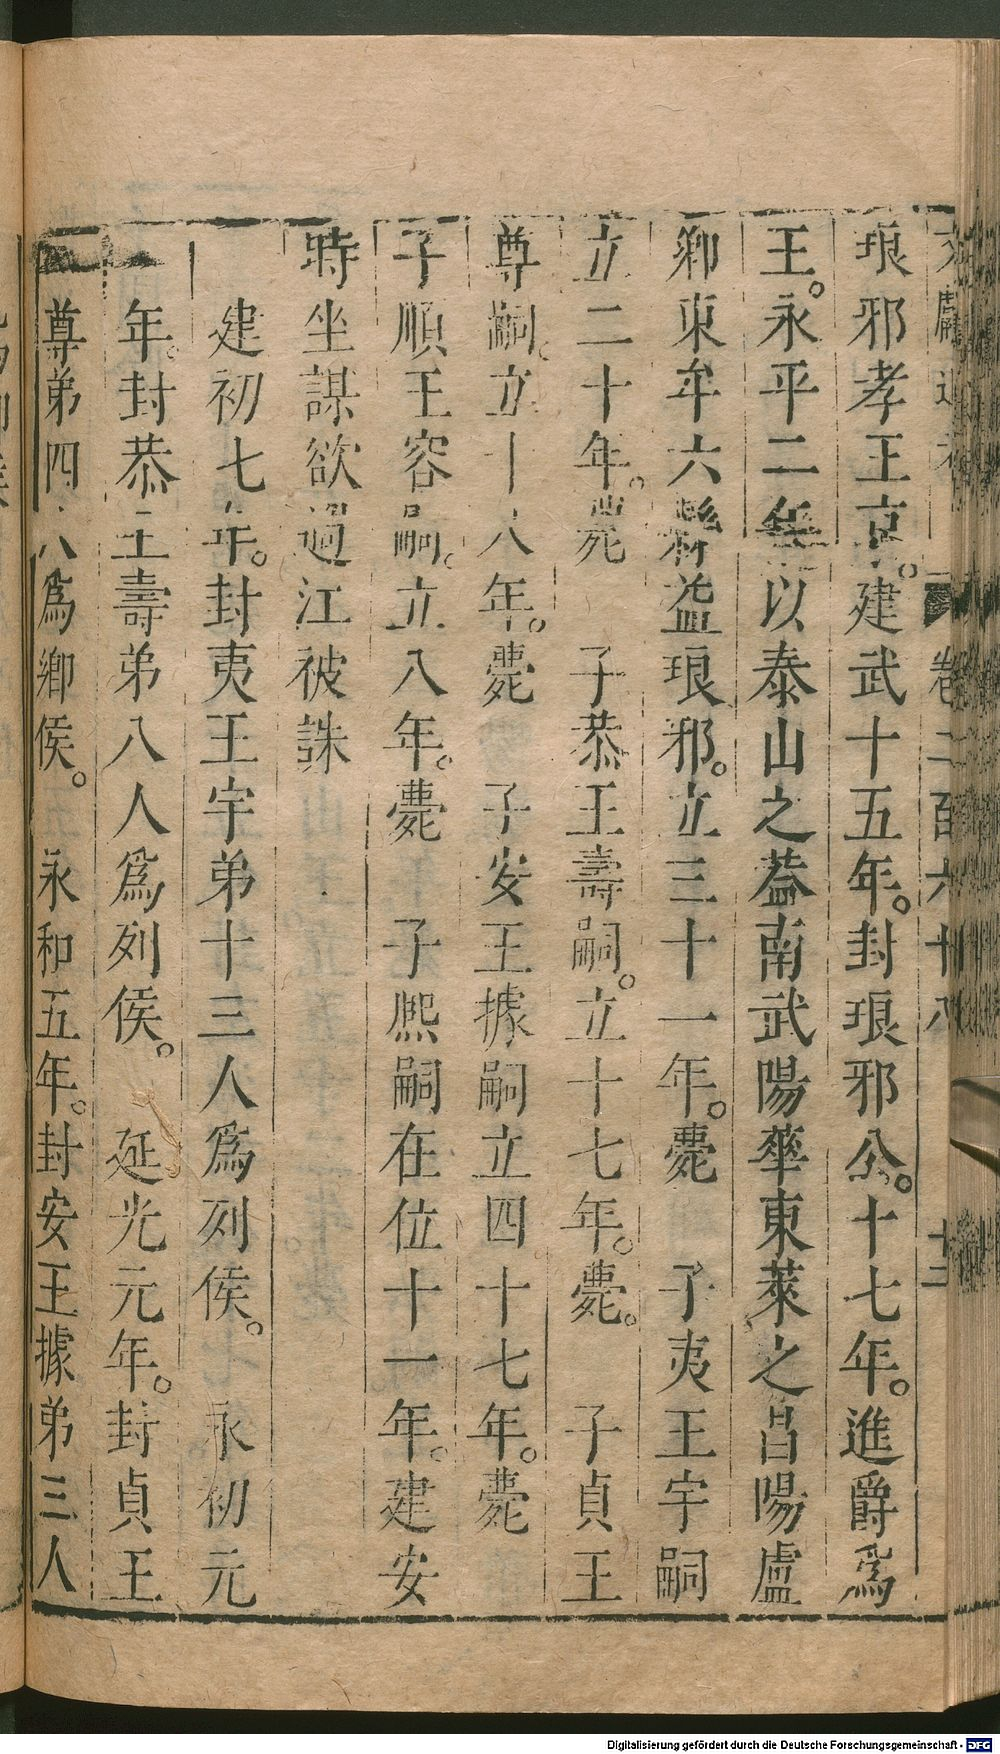 文獻通考 卷二百六十八 十三
琅邪孝王京。建武十五年。封琅邪公。十七年。進爵爲
王。永平二年以泰山之葢南武陽華東萊之昌陽盧
鄉東牟六縣益琅邪。立三十一年。薨 子夷王宇嗣
立二十年。薨 子恭王壽嗣。立十七年。薨。 子貞王
尊嗣。立十八年。薨 子安王據嗣立四十七年。薨
子順王容嗣。立八年。薨 子熈嗣在位十一年。建安
時坐謀欲過江被誅
建初七年。封夷王宇弟十三人爲列侯。 永初元
年。封恭王壽弟八人爲列侯。 延光元年。封貞王
尊弟四人爲鄉侯。 永和五年。封安王據弟三人
Digitalisierung gefördert durch die Deutsche Forschungsgemeinschaft - DFG